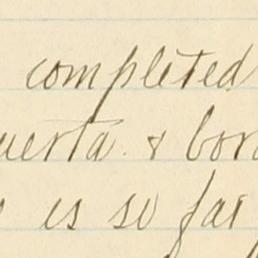 completed
uerta. & bor
is so far